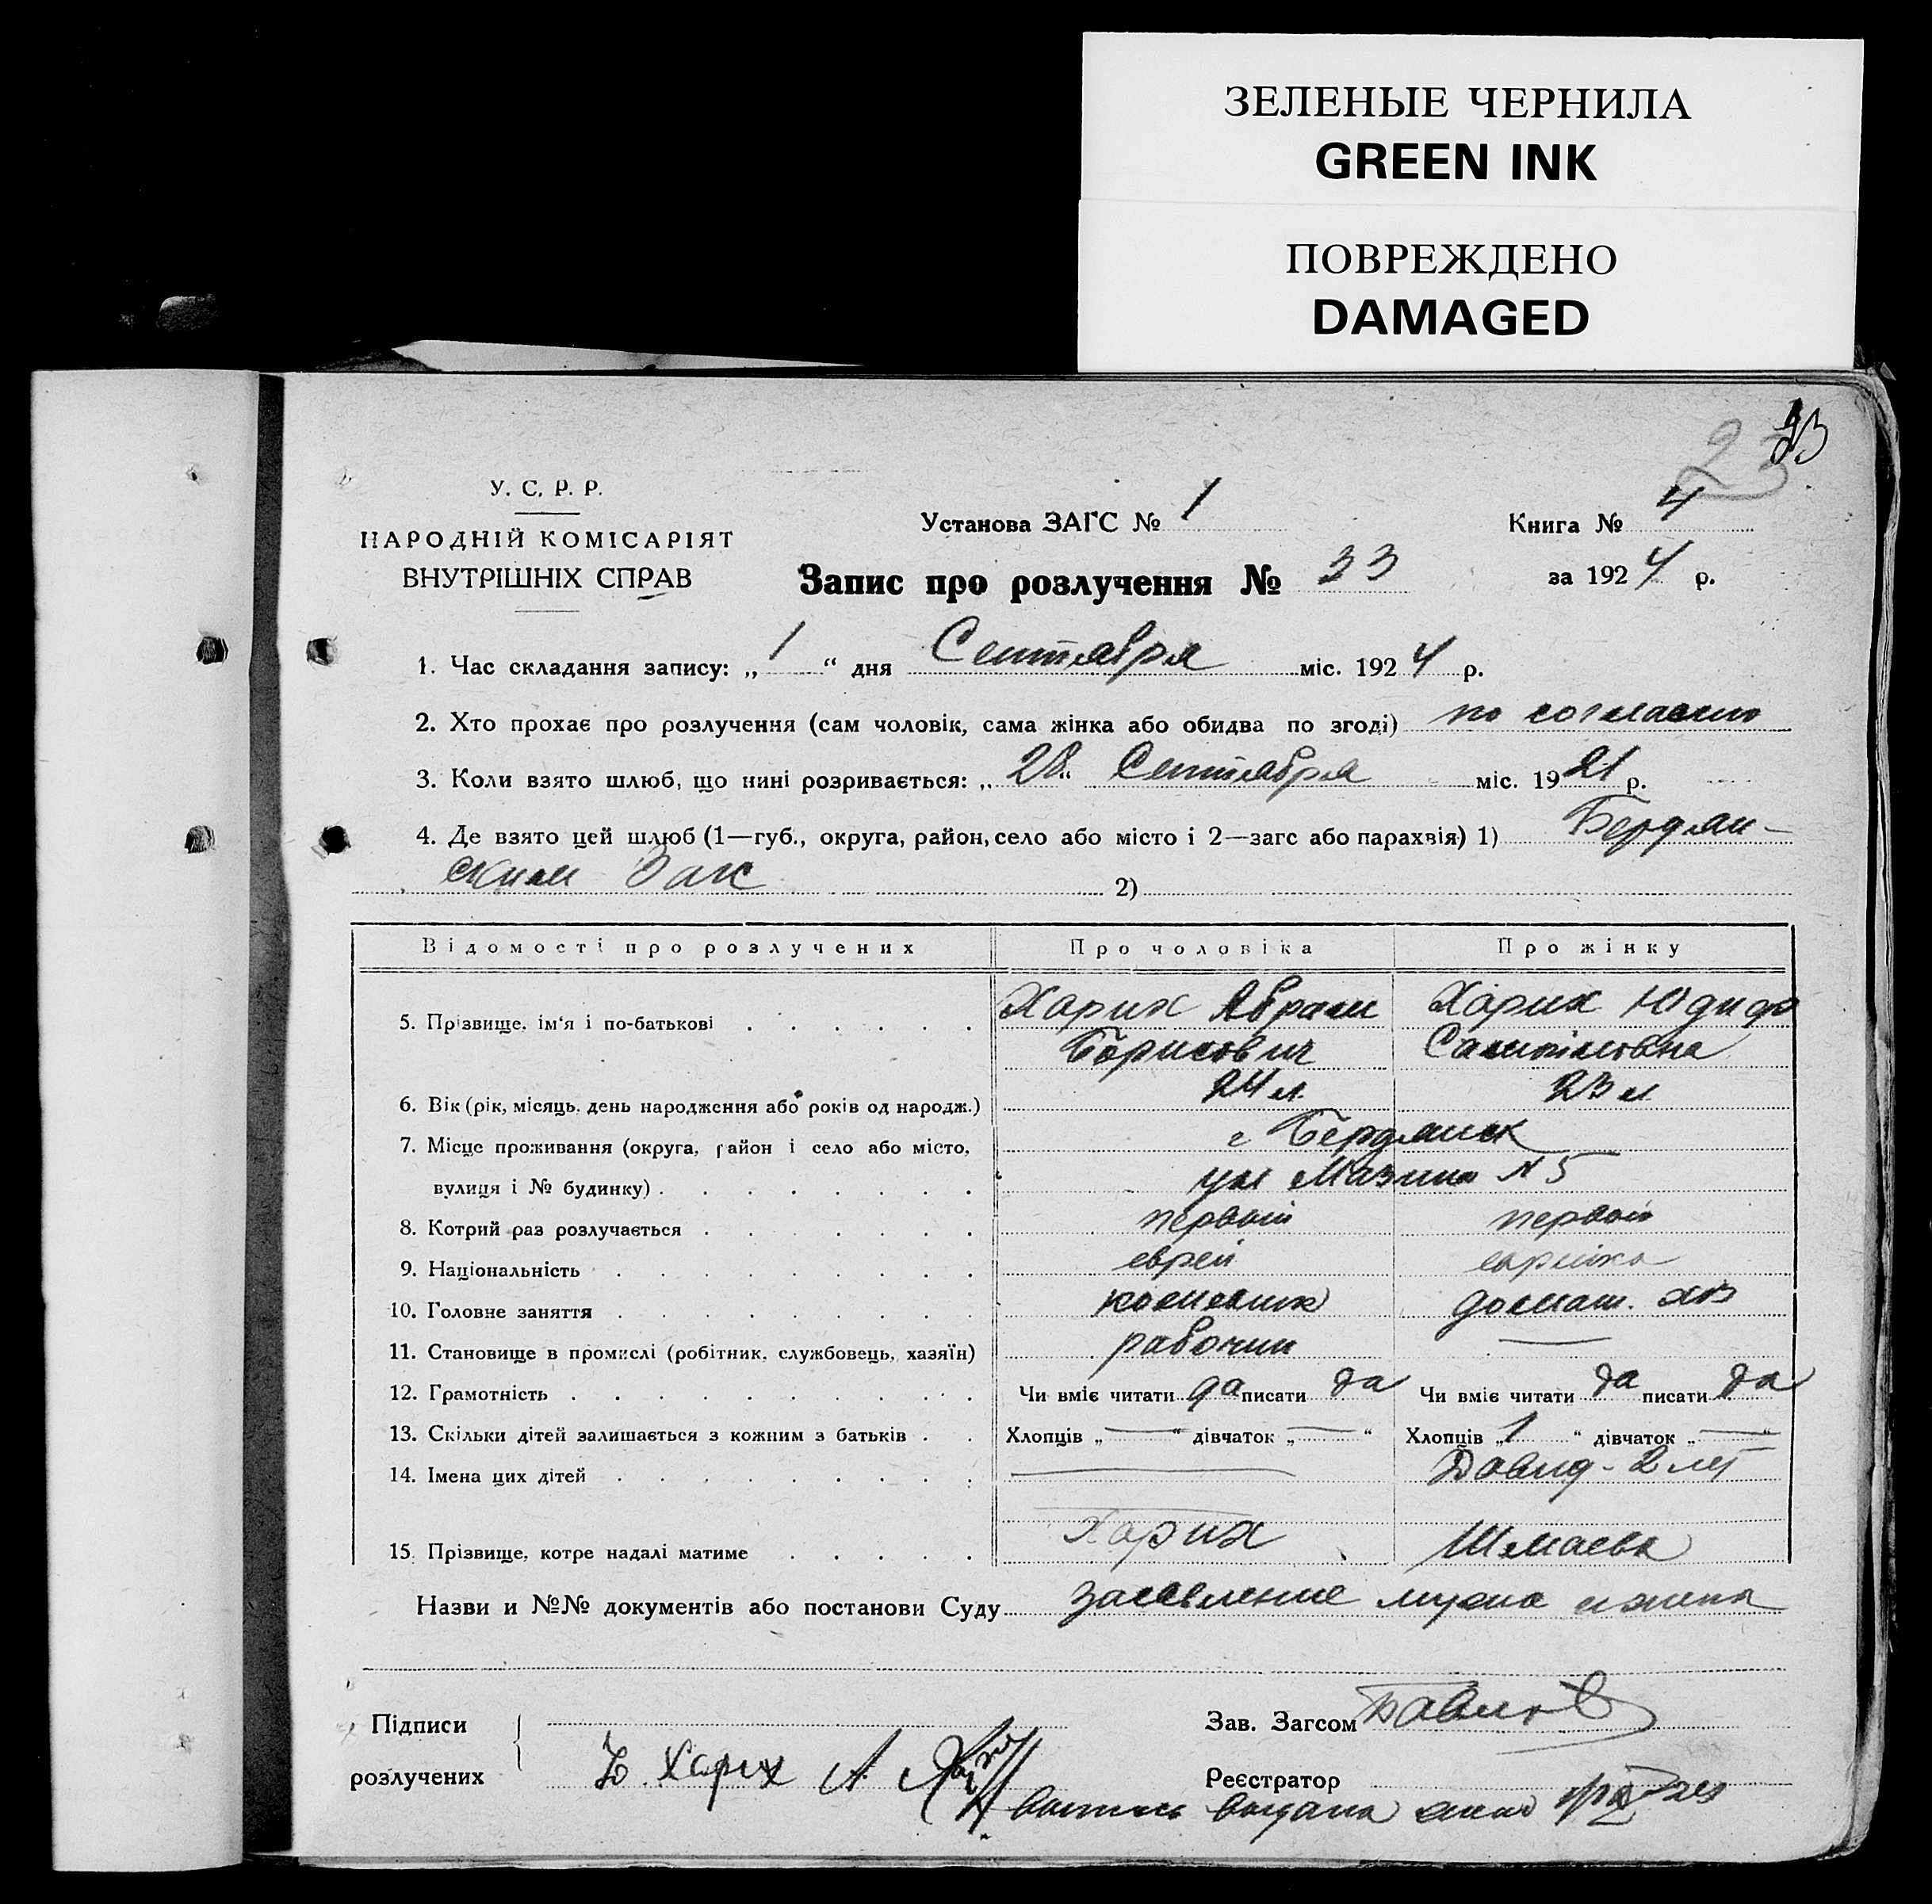 ЗЕЛЕНЫЕ ЧЕРНИЛА
GREEN INK
ПОВРЕЖДЕНО
DAMAGED
23
У. С. Р. Р.
НАРОДНІЙ КОМІСАРІЯТ
ВНУТРІШНІХ СПРАВ
Установа ЗАГС № 1
Книга № 4
Запис про розлучення № 33
за 1924 р.
1. Час складання запису: „ 1 “ дня Сентября міс. 1924 р.
2. Хто прохає про розлучення (сам чоловік, сама жінка або обидва по згоді) по согласию
3. Коли взято шлюб, що нині розривається: „ 28 “ Сентября міс. 1921 р.
4. Де взято цей шлюб (1—губ., округа, район, село або місто і 2—загс або парахвія) 1) Бердян-
ским Заг 2)
Відомості про розлучених Про чоловіка Про жінку
5. Прізвище, ім‘я і по-батькові Харих Абрам Харих Юдифь
Борисович Самойловна
6. Вік (рік, місяць, день народження або років од народж.) 24 л. 23 л
7. Місце проживання (округа, район і село або місто, г Бердянск
вулиця і № будинку) ул Мазина № 5
8. Котрий раз розлучається первый первый
9. Національність еврей еврейка
10. Головне заняття домаш. хоз
11. Становище в промислі (робітник, службовець, хазяїн) рабочий —
12. Грамотність Чи вміє читати да писати да Чи вміє читати да писати да
13. Скільки дітей залишається з кожним з батьків Хлопців „ — “ дівчаток „ — “ Хлопців „ 1 “ дівчаток „ — “
14. Імена цих дітей — Давид - 2 лет
15. Прізвище, котре надалі матиме Харих Шмаева
Назви и №№ документів або постанови Суду заявление мужа и жены
Підписи
розлучених Ю. Харих А.
Зав. Загсом
Реєстратор
выпись выдана